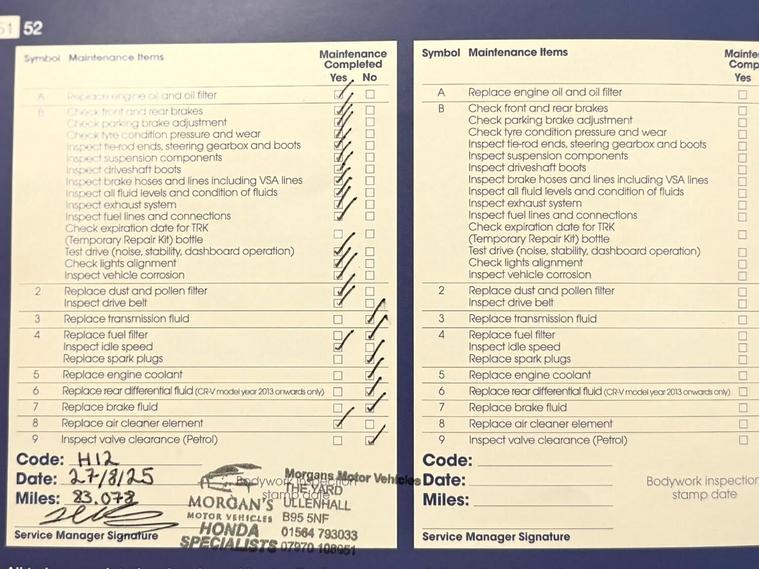 51 52
Symbol Maintenance Items
Maintenance
Completed
Yes No
A Replace engine oil and oil filter
B Check front and rear brakes
Check parking brake adjustment
Check tyre condition pressure and wear
Inspect tie-rod ends, steering gearbox and boots
Inspect suspension components
Inspect driveshaft boots
Inspect brake hoses and lines including VSA lines
Inspect all fluid levels and condition of fluids
Inspect exhaust system
Inspect fuel lines and connections
Check expiration date for TRK
(Temporary Repair Kit) bottle
Test drive (noise, stability, dashboard operation)
Check lights alignment
Inspect vehicle corrosion
2 Replace dust and pollen filter
Inspect drive belt
3 Replace transmission fluid
4 Replace fuel filter
Inspect idle speed
Replace spark plugs
5 Replace engine coolant
6 Replace rear differential fluid (CR-V model year 2013 onwards only)
7 Replace brake fluid
8 Replace air cleaner element
9 Inspect valve clearance (Petrol)
Code: H12
Date: 27/8/25
Miles: 83,078
Service Manager Signature
Bodywork inspection
stamp date
MORGAN'S
MOTOR VEHICLES
HONDA
SPECIALISTS
Morgans Motor Vehicles
THE YARD
ULLENHALL
B95 5NF
01564 793033
07970 108951
Symbol Maintenance Items
Mainte
Comp
Yes
A Replace engine oil and oil filter
B Check front and rear brakes
Check parking brake adjustment
Check tyre condition pressure and wear
Inspect tie-rod ends, steering gearbox and boots
Inspect suspension components
Inspect driveshaft boots
Inspect brake hoses and lines including VSA lines
Inspect all fluid levels and condition of fluids
Inspect exhaust system
Inspect fuel lines and connections
Check expiration date for TRK
(Temporary Repair Kit) bottle
Test drive (noise, stability, dashboard operation)
Check lights alignment
Inspect vehicle corrosion
2 Replace dust and pollen filter
Inspect drive belt
3 Replace transmission fluid
4 Replace fuel filter
Inspect idle speed
Replace spark plugs
5 Replace engine coolant
6 Replace rear differential fluid (CR-V model year 2013 onwards only)
7 Replace brake fluid
8 Replace air cleaner element
9 Inspect valve clearance (Petrol)
Code:
Date:
Miles:
Bodywork inspection
stamp date
Service Manager Signature